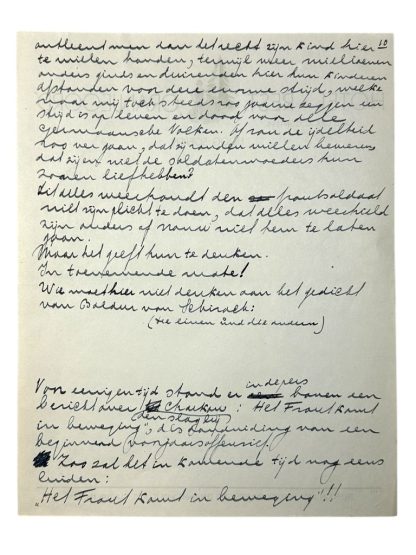 10
ontleent men dan het recht zijn kind hier
te willen houden, terwijl weer millioenen
anders ginds en duizenden hier hun kinderen
afstonden voor deze enorme strijd, welke
naar mij toch steeds nog gaarne zeggen een
strijd is op leven en dood voor alle
germaansche Volken. Of zou de ijdelheid
zoo ver gaan, dat zij zouden willen beweren,
dat zij en niet de soldatenmoeders hun
zonen liefhebben?
Dit alles weerhoudt den frontsoldaat
niet zijn plicht te doen, dat alles weerhield
zijn ouders of vrouw niet hem te laten
gaan.
Maar het geeft hun te denken.
In toenemende mate!
Wie moet hier niet denken aan het gedicht
van Baldur von Schirach:
(Die einen und die andern)
Voor eenigen tijd stond er in de pers boven een
bericht over den slag bij Charkow: "Het Front komt
in beweging", dis aanduiding van een
beginnend voorjaarsoffensief.
Zoo zal het in komende tijd nog eens
luiden:
"Het Front komt in beweging"!!